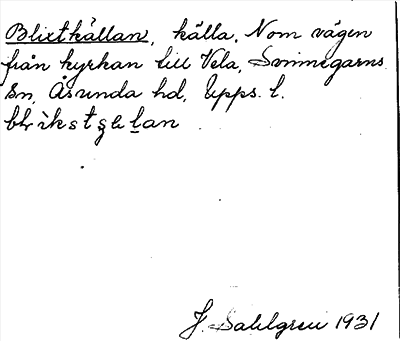 Blixtkällan, källa, Nom vägen
från kyrkan till Vela, Svinnegarns
sn, Åsunda hd, Upps. l.
J. Sahlgren 1931